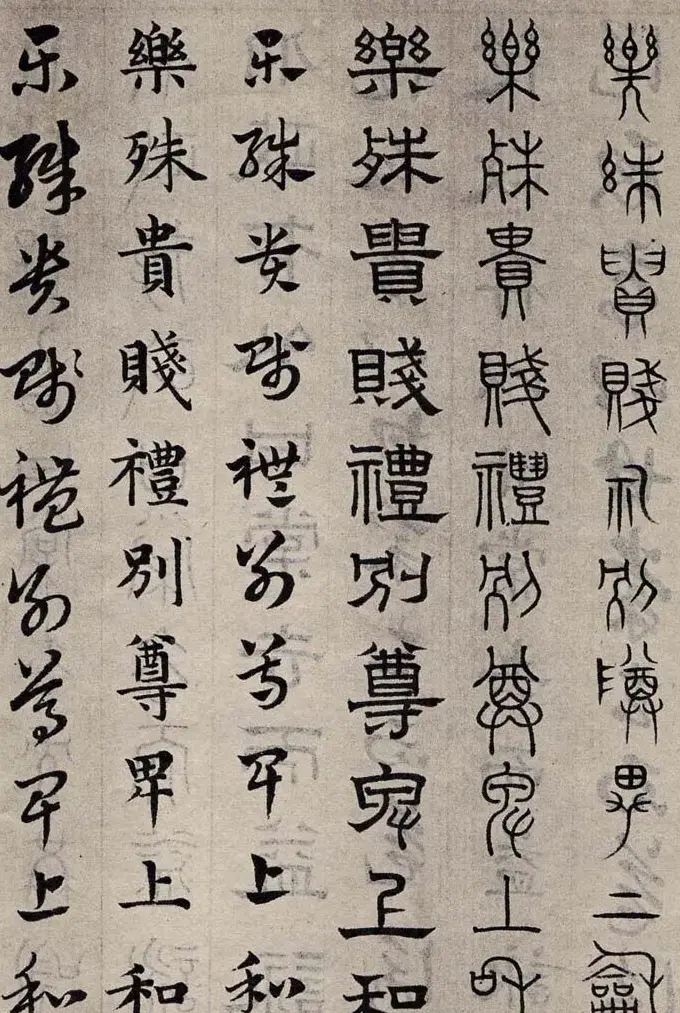 樂殊貴賤禮別尊卑上和
樂殊貴賤禮別尊卑上和
樂殊貴賤禮別尊卑上和
樂殊貴賤禮別尊卑上和
樂殊貴賤禮別尊卑上和
樂殊貴賤禮別尊卑上和